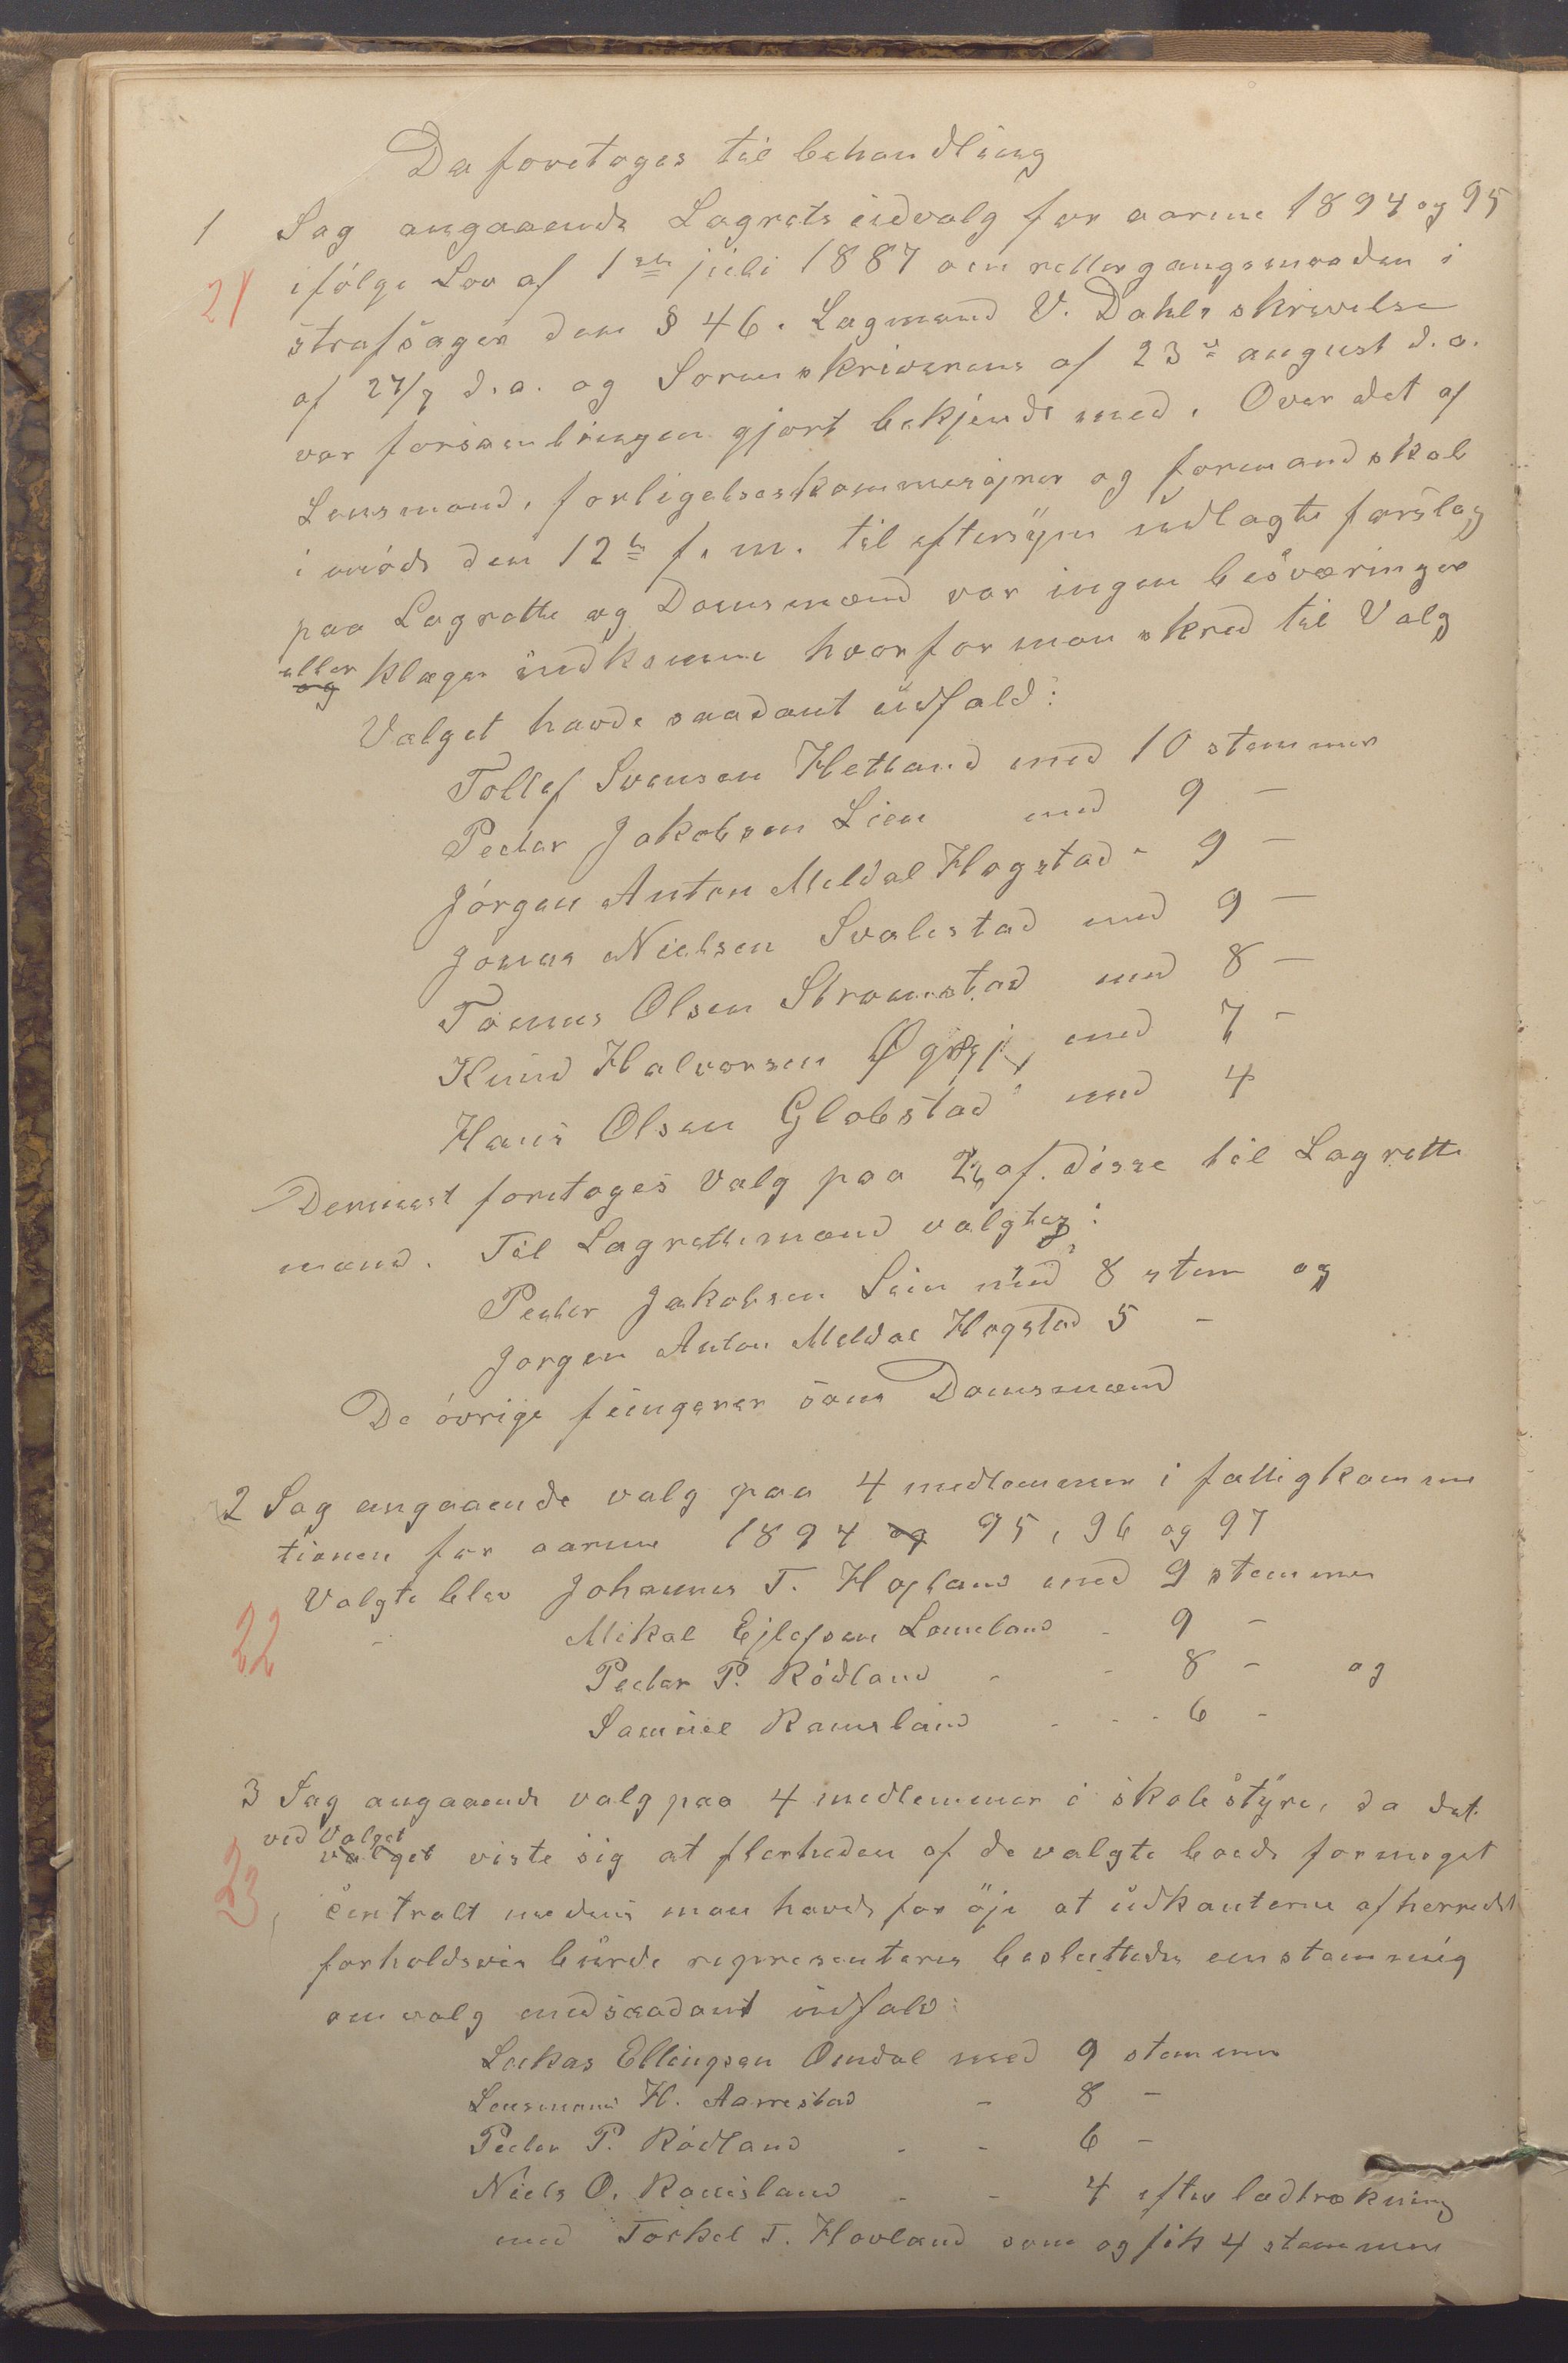 Da foretoges til behandling
1 Sag angaaende Lagrets udvalg for aarene 1894 og 95
21 ifólge Lov af 1ste juli 1887 om rettergangsmaaden i
strafsager dens § 46. Lagmand V. Dahls skrivelse
af 27/7 d.a. og Sorenskriverens af 23de august d.a.
var forsamlingen gjort bekjendt med. Over det af
Lensmand, forligelseskommisjner og formandskab
i möde den 12te f. m. til eftersyn udlagte forslag
paa Lagrette og Domsmænd var ingen besværinger
eller og klager indkomne hvorfor man skred til Valg
Valget havde saadant udfald:
Tollef Svensen Hetland med 10 stemmer
Peder Jakobsen Lien med 9 —
Jörgen Anton Meldal Hogstad - 9 —
Jonas Nielsen Svalestad med 9 —
Tønnes Olsen Stromstad med 8 —
Knud Halvorsen med 7 -
Hans Olsen Globstad med 4
Dernæst foretoges Valg paa 2 af disse til Lagrette
mænd. Til Lagrettemænd valgtes:
Peder Jakobsen Lien med 8 stem og
Jorgen Anton Meldal Hogstad 5 -
De övrige fungerer som Domsmænd
2 Sag angaaende valg paa 4 medlemmer i fattigkommi
tionen for aarene 1894 og 95, 96 og 97
Valgte blev Johannes T. Hogland med 9 stemmer
22 - Mikal Ejlefsen Lomeland - 9 -
Peder P. Rödland - - 8 - og
Samuel Ramsland - - - 6 -
3 Sag angaaende valg paa 4 medlemmer i skolestyre, da det
ved Valget valget viste sig at flerheden af de valgte boede formeget
23 centralt medens man havde for öje at udkanterne af herredet
forholdsvis burde representeres besluttedes enstemmig
omvalg med saadant udfald:
Lukas Ellingsen Omdal med 9 stemmer
Lensmand H. Aarrestad - 8 -
Peder P. Rödland - - 6 -
Niels O. Ramsland - - 4 efter lodtrækning
med Torkel T. Hovland som og fik 4 stemmer